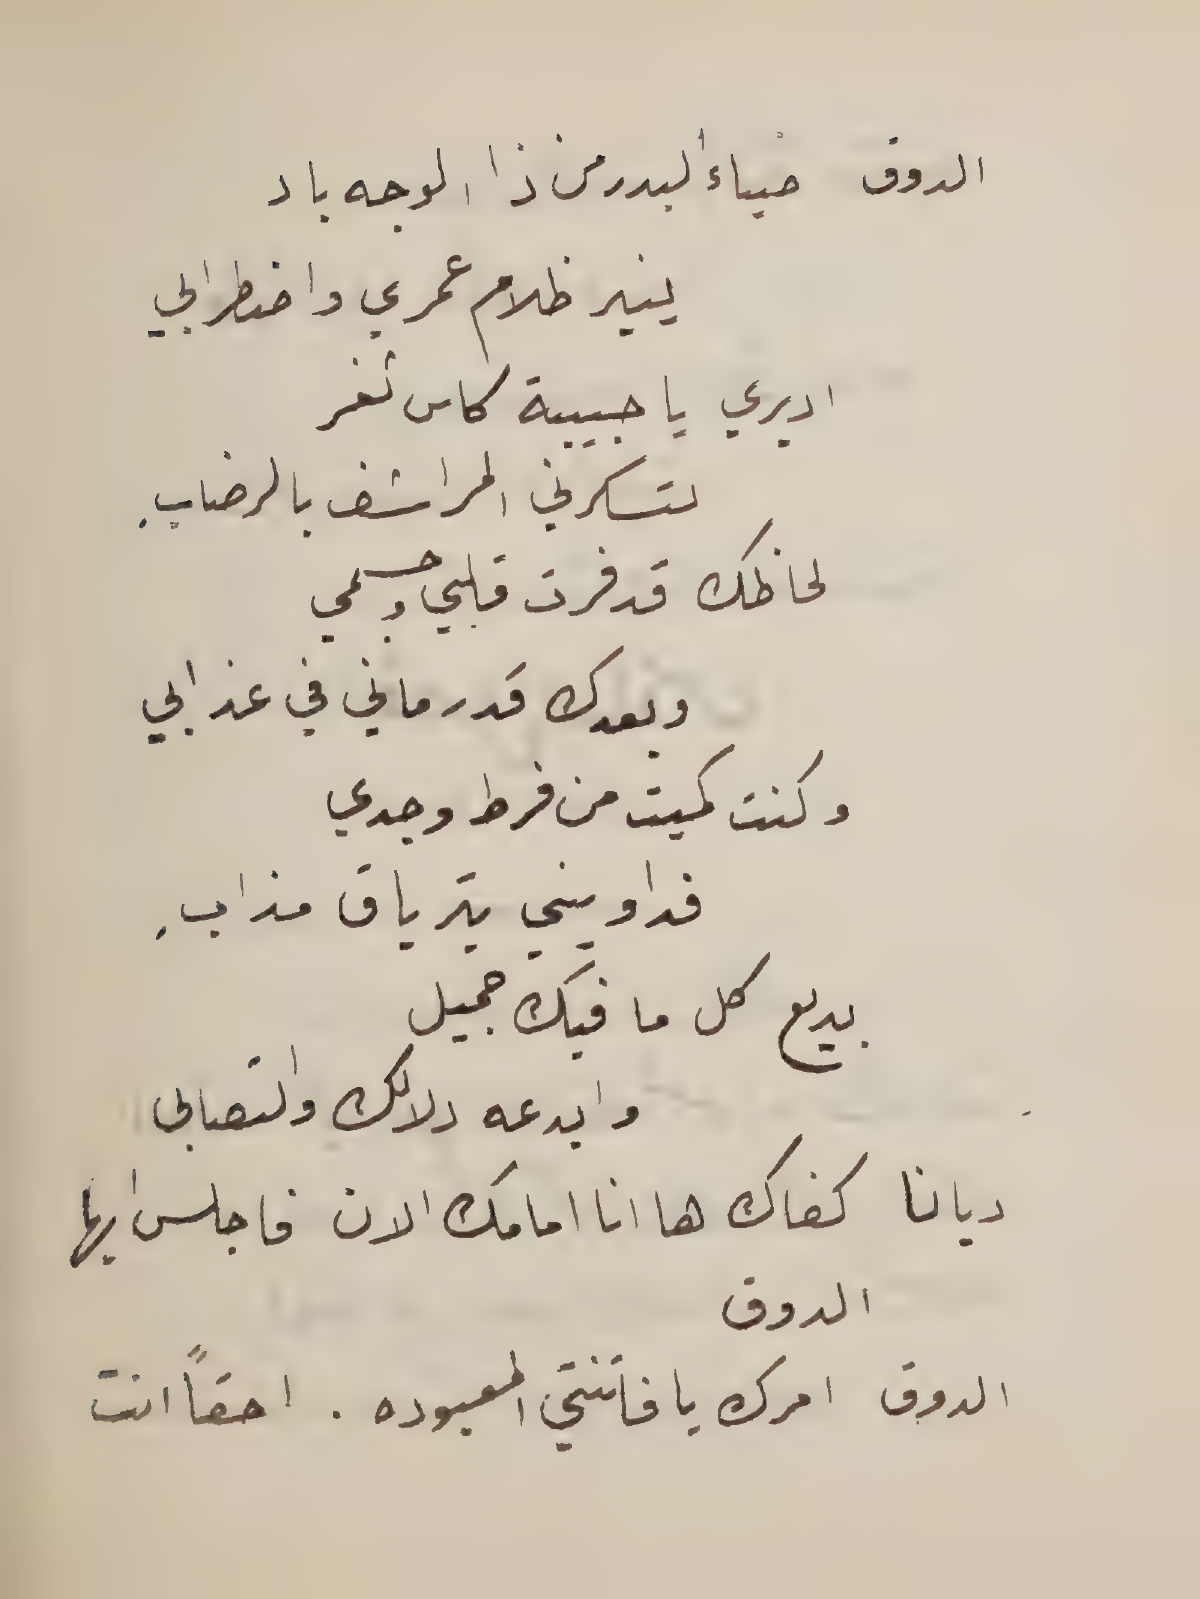 الدوق ضياء البدر من ذا الوجه باد
ينير ظلام عمري واضطرابي
اديري يا حبيبة كاس ثغر
لتسكرني المراشف بالرضاب.
لحاظك قد فرت قلبي وجسمي
وبعدك قد رماني في عذابي
وكنت كميت من فرط وجدي
فداويني بترياق مذاب.
بديع كل ما فيك جميل
وابدعه دلالك والتصابي
ديانا كفاك ها انا امامك الان فاجلس ايها
الدوق
الدوق امرك يا فاتنتي المعبوده . احقاً انت